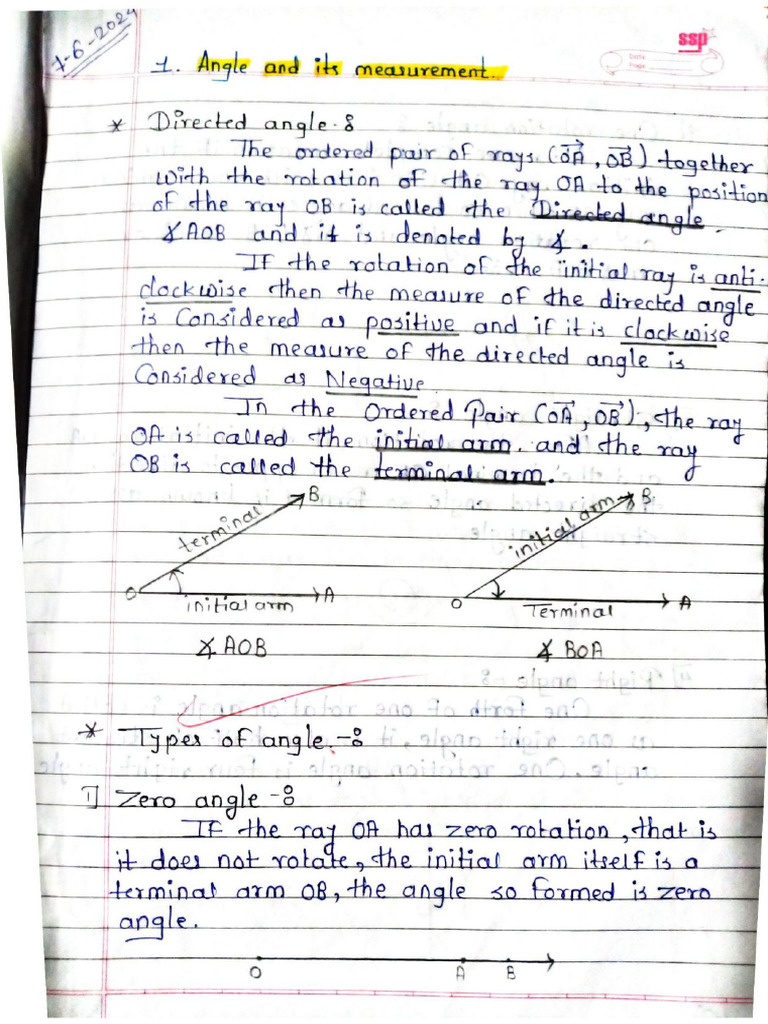 7-6-2024
ssp
Date
Page
1. Angle and its measurement.
* Directed angle :
The ordered pair of rays (OA, OB) together
with the rotation of the ray OA to the position
of the ray OB is called the Directed angle
∡AOB and it is denoted by ∡.
If the rotation of the initial ray is anti-
clockwise then the measure of the directed angle
is Considered as positive and if it is clockwise
then the measure of the directed angle is
Considered as Negative.
In the Ordered Pair (OA, OB), the ray
OA is called the initial arm. and the ray
OB is called the terminal arm.
B
terminal
O
initial arm
A
∡ AOB
B
initial arm
O
Terminal
A
∡ BOA
* Types of angle :-
1] Zero angle -:
If the ray OA has zero rotation, that is
it does not rotate, the initial arm itself is a
terminal arm OB, the angle so formed is zero
angle.
O A B